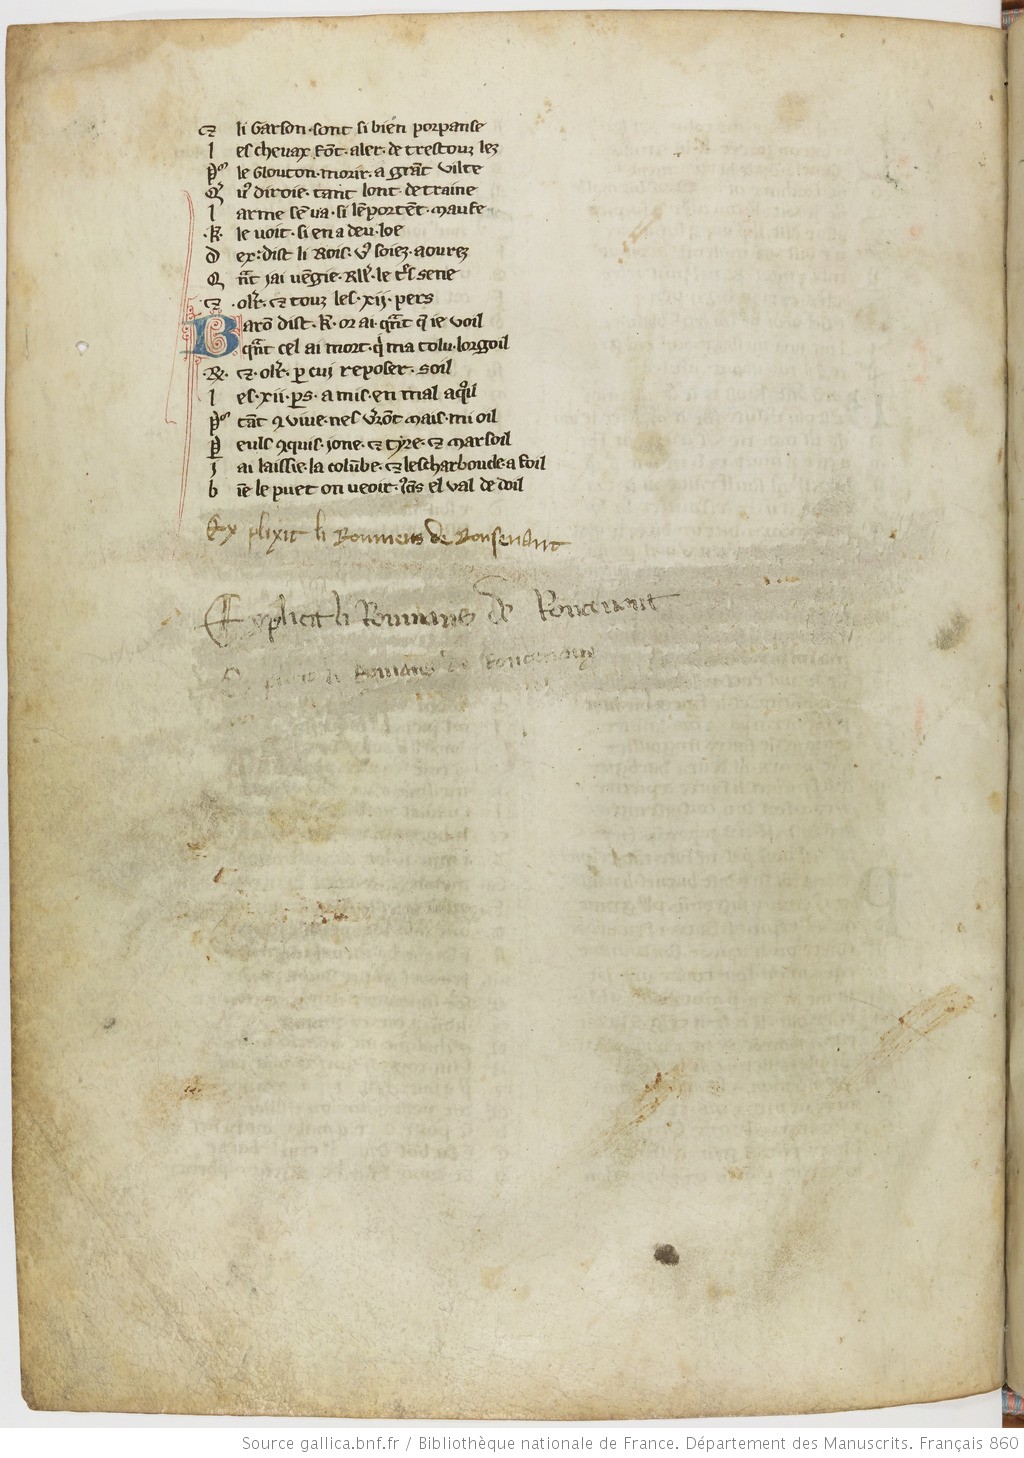 ⁊ li Garson · sont si bien porpanse
l es chevax fōt · aler · de trestouz lez
P᷒ le Glouton · morir · a grāt vilte
Q vo᷒ diroie · tant lont · detraine
l arme sē va · si lē portēt · maufe
·K· le voit · si en a deu · loe
D ex : dist li Rois · vo᷒ soiez · aourez
Q nt jai vēgie · Roll' · le
⁊ · olr̄ · ⁊ touz les · xij · pers
B arō dist · K · or ai · qānt q̄ ie voil
qānt cel ai mort · qi ma tolu · lorgoil
·R· ⁊ · olr̄ · ꝑ cui reposer · soil
l es · xii · ꝑs · a mis · en mal aqoil
P᷒ tāt ꝯ vive · nes v̄rōt mais · mi oil
P euls ꝯquis · jone · ⁊ tyre · ⁊ marsoil
j ai laissie · la colūbe · ⁊ lescharboucle · a foil
b iē le puet on veoir · el val de doil
Explixit li Roumens de Ronsevaut
Explicit li Roumans de Roncevaut
Explicit li Romans de Roncevaux
Source gallica.bnf.fr / Bibliothèque nationale de France. Département des Manuscrits. Français 860